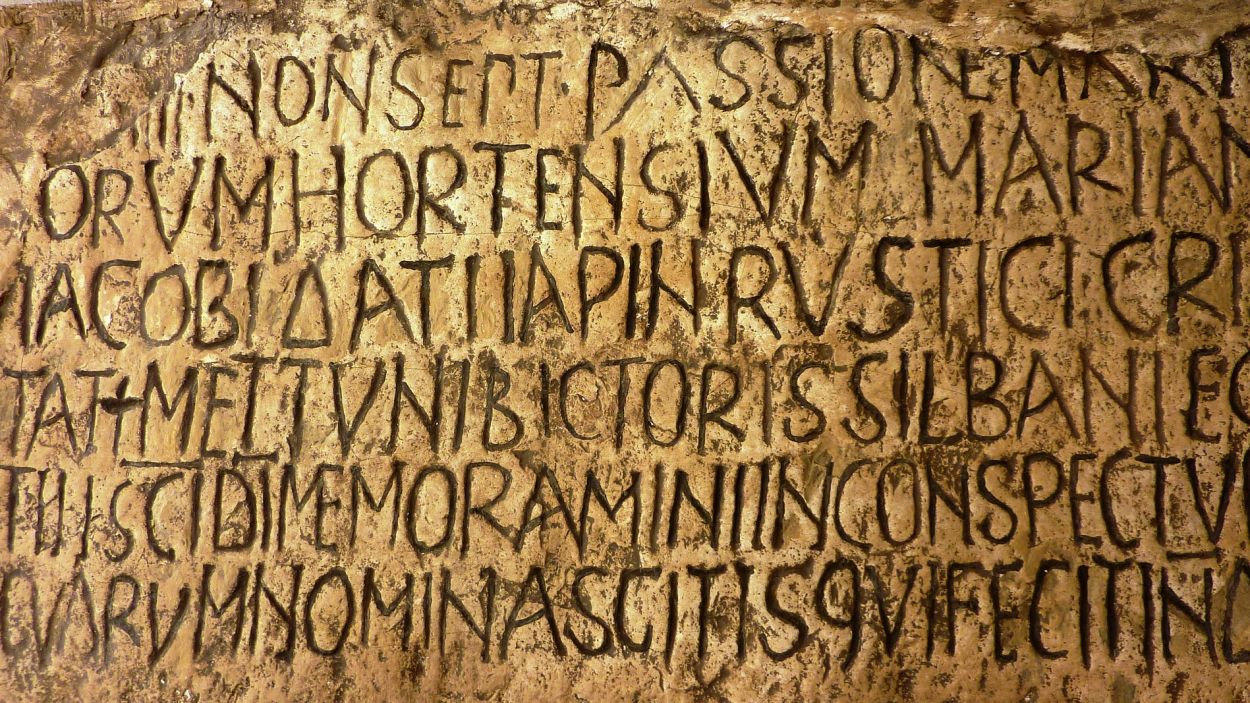 II NON SEPT · PASSIONE MART
ORVM HORTENSIVM MARIAN
IACOBI DATI IAPIN RVSTICI CRI
TAT + METTVNI BICTORIS SILBANI EG
TII SCI DI MEMORAMINI IN CONSPECTV
QVORVM NOMINA SCIT IS QVI FECIT IND